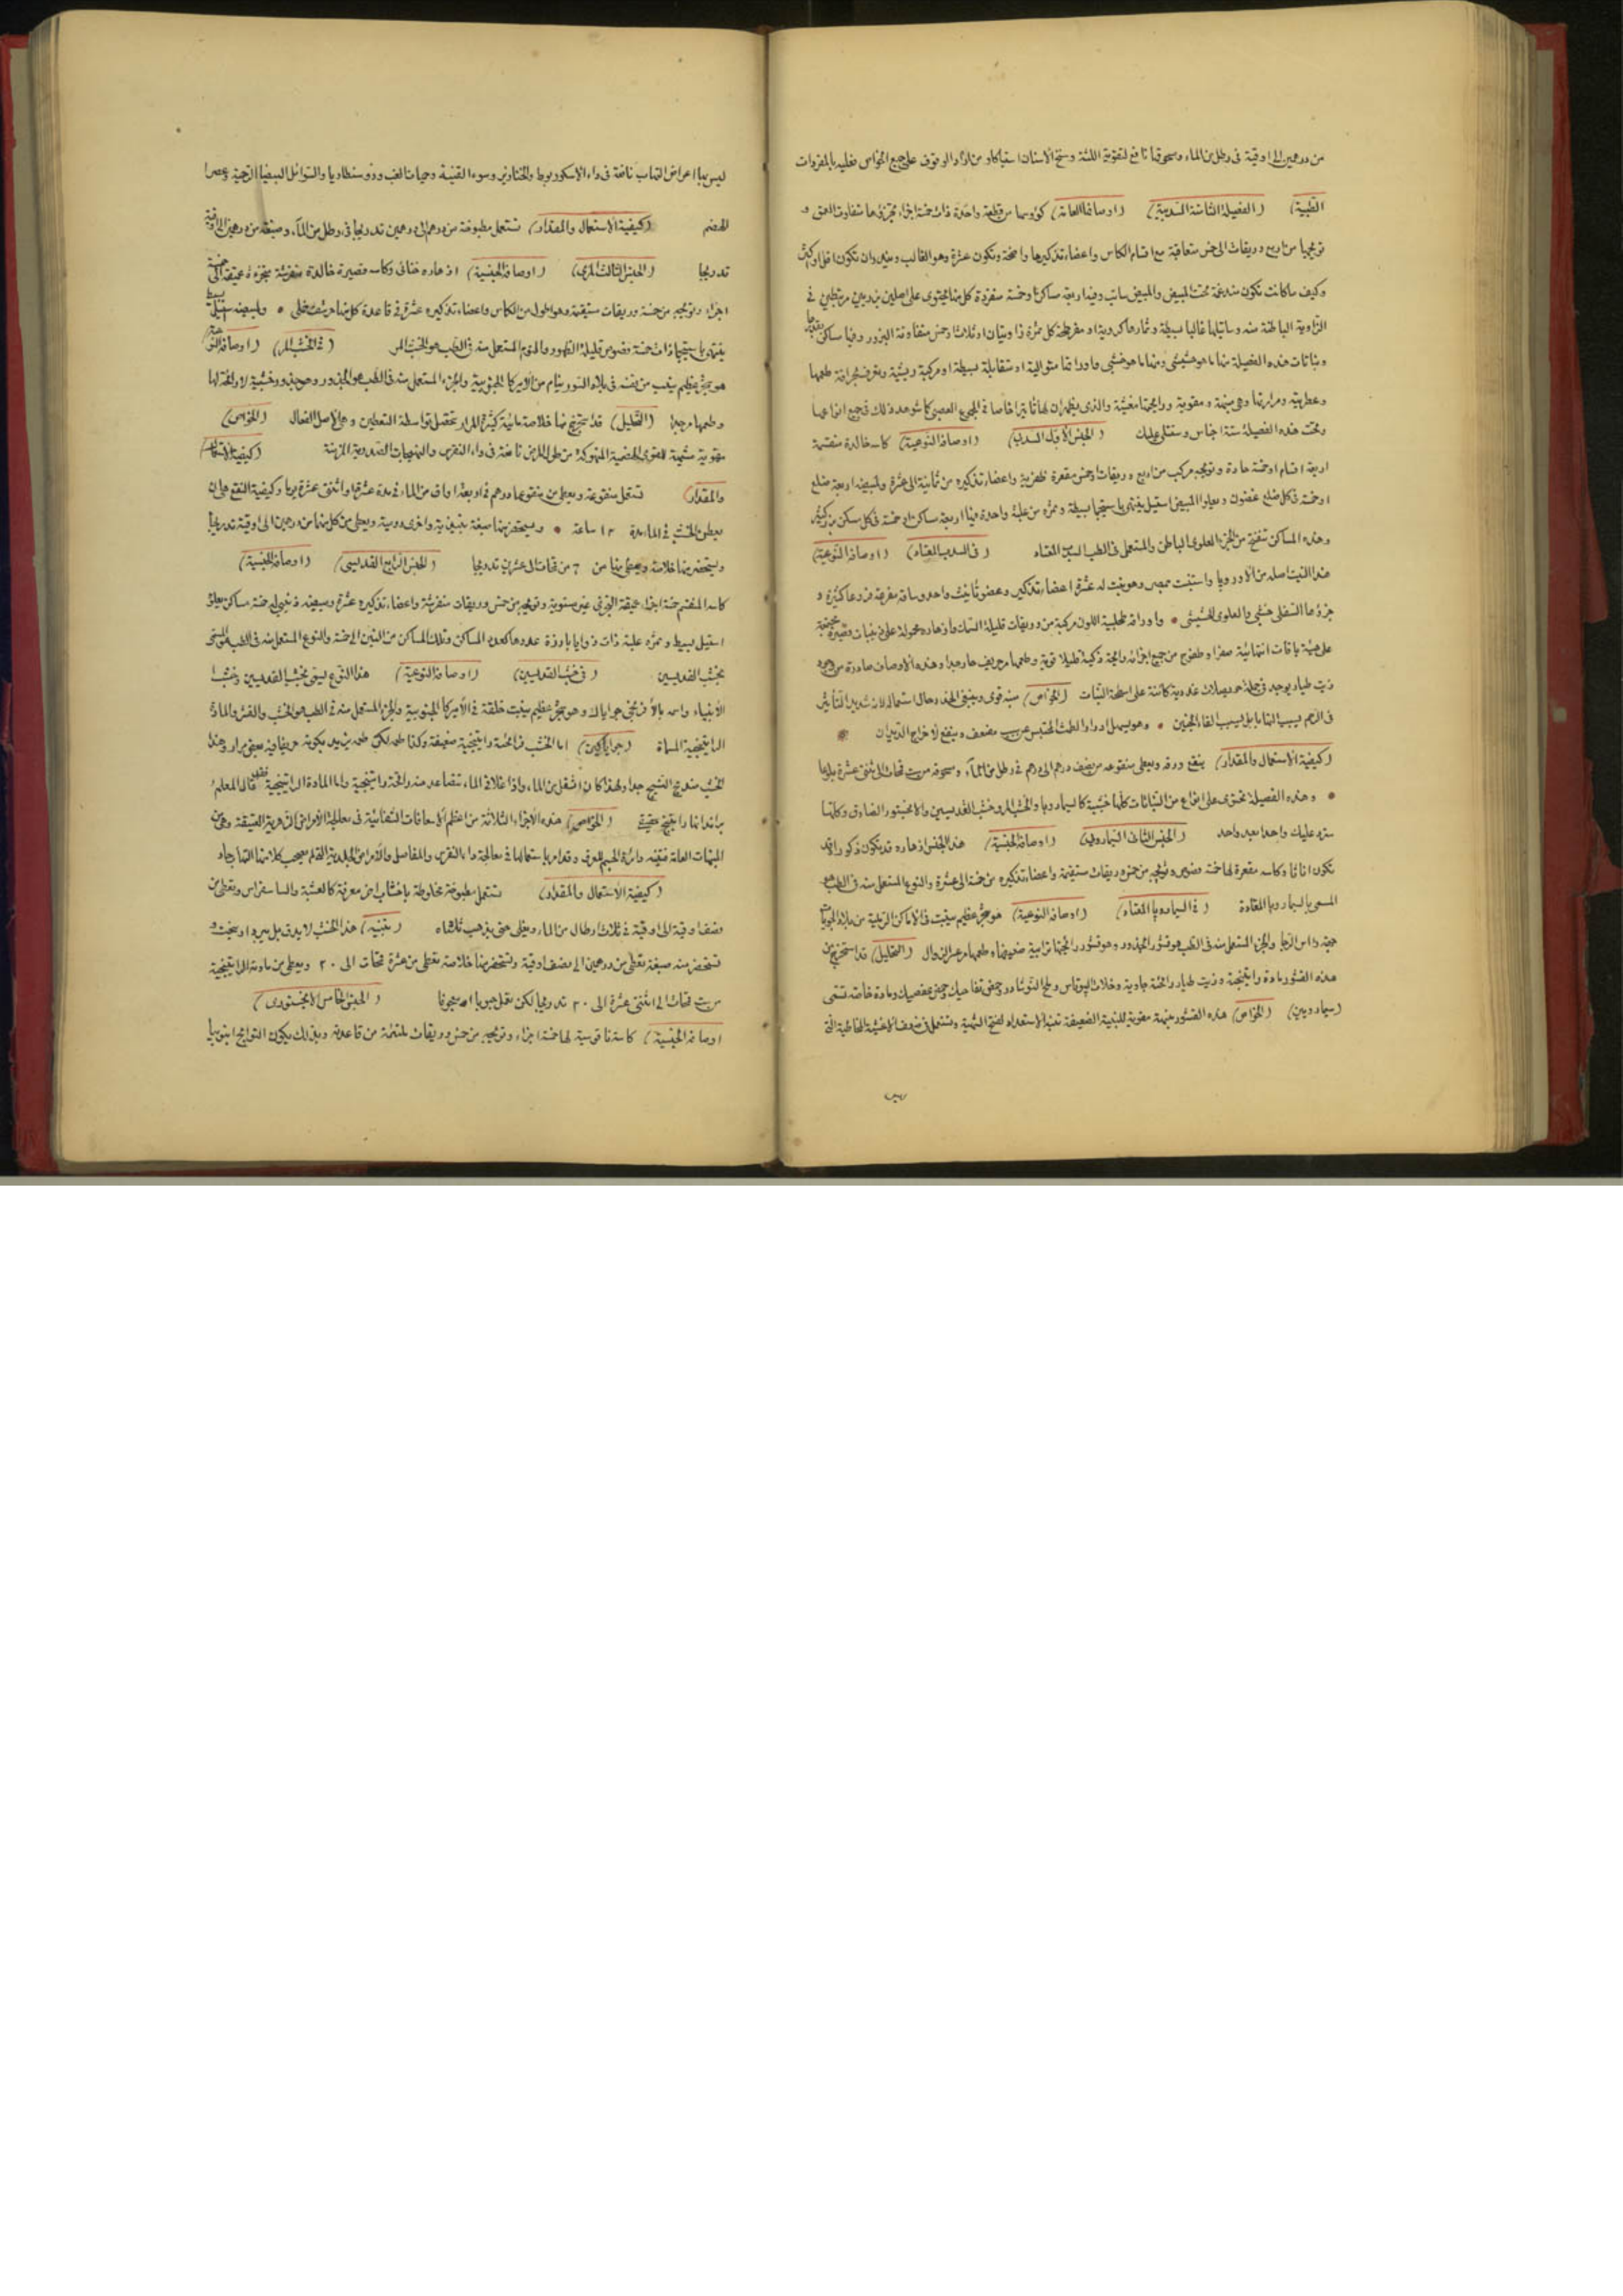 من درهمين الى اوقية فى رطل من الماء ومسحوقها نافع لتقوية اللثة وسخ الاسنان استياكا ومن اراد الوقوف على جميع الخواص فعليه بالمفردات
الطبية (الفصيلة الثامنة السدبية) (اوصافها العامة) كؤوسها من قطعة واحدة ذات خمسة اجزاء تجزؤها متفاوت العمق و
تويجها من اربع وريقات الى خمس متعاقبة مع اقسام الكاس واعضاء تذكيرها واضحة وتكون عشرة وهو الغالب وندر ان تكون اقل او اكثر
وكيف ما كانت تكون مندغمة تحت المبيض والمبيض سائب وفيه اربعة مساكن او خمسة منفردة كل منها يحتوى على اصلين بزريين مرتبطين فى
الزاوية الباطنة منه غالبا بسيطة وثمارها كل ثمرة ذا وبنتان او ثلاث او خمس متفاوتة البزور وفيها مساكن
ونباتات هذه الفصيلة منها ما هو حشيشى ومنها ما هو خشبى واوراقها متوالية او متقابلة بسيطة او مركبة ريشية وتعرف بحرافة طعمها
وعطريته ومرارتها وهى منبهة ومقوية ورايحتها مغثية والذى يظهر ان لها تاثيرا خاصا فى المجموع العصبى كما شوهد ذلك فى جميع انواعها
وتحت هذه الفصيلة ستة اجناس وستتلى عليك (الجنس الاول السدب) (اوصافه النوعية) كاسه خالدة منقسمة
اربعة اقسام او خمسة حادة وتويجه مركب من اربع وريقات او خمس مقعرة ظفرية واعضاء تذكيره من ثمانية الى عشرة ولمبيضه اربعة ضلع
او خمسة فى كل ضلع غضون ويعلو المبيض استيل ينتهى باستيجما بسيطة وثمره من علبة واحدة فيها اربعة مساكن او خمسة فى كل مسكن بزر كثيرة
وهذه المساكن تنفتح من الجزء العلوى الباطن والمستعمل فى الطب السدب المعتاد (فى السدب المعتاد) (اوصافه النوعية)
هذا النبت اصله من الاوروپا واستنبت بمصر وهو نبت له عشرة اعضاء تذكير وعضو تأنيث واحد وساقه متفرعة فروعا كثيرة و
جزؤها السفلى خشبى والعلوى حشيشى واوراقه طحلبية اللون مركبة من وريقات قليلة السمك وازهاره محمولة على ذنيبات قصيرة مجتمعة
على هيئة باقات انتهائية صفرا وتفوح من جميع اجزائه رائحة ذكية قليلا قوية وطعمها مر حريف حار جدا وهذه الاوصاف صادرة من وجود
زيت طيار يوجد فى جملة حويصلات غددية كائنة على اسطحة النبات (الخواص) منبه قوى وينبغى الحذر حال استعماله لانه شديد التأثير
فى الرحم يسبب التهابا بل يسبب القاء الجنين وهو يسهل ادرار الطمث المحتبس عن سبب مضعف وينفع لاخراج الديدان
(كيفية الاستعمال والمقدار) ينقع ورقه ويعطى منقوعه من نصف درهم الى درهم فى رطل من الماء ومسحوقه من ست قمحات الى اثنتى عشرة بلوعا
وهذه الفصيلة تحتوى على انواع من النباتات كلها خشبية كالسيماروبا والخشب المر وخشب القديسين والانجستور الصادق وكلها
سترد عليك واحدا بعد واحد (الجنس الثانى السيماروبى) (اوصافه الجنسية) هذا الجنس ازهاره قد تكون ذكورا وقد
تكون اناثا وكاسه مقعرة لها خمسة فصوص وتويجه من خمس وريقات مستقيمة واعضاء تذكيره من خمسة الى عشرة والنوع المستعمل منه فى الطب هو
المسمى بالسيماروبا المعتادة (فى السيماروبا المعتاد) (اوصافه النوعية) هو شجر عظيم ينبت فى الاماكن الرملية من بلاد
والجزء المستعمل منه فى الطب هو قشور الجذور وهو قشور رائحتها ترابية ضعيفة وطعمها مر عسر الزوال (التحليل) قد استخرج من
هذه القشور مادة راتينجية وزيت طيار رائحته جاوية وخلات البوتاس وملح النوشادر وحمض تفاحيك وحمض عفصيك ومادة خاصة تسمى
(سيماروبين) (الخواص) هذه القشور منبهة مقوية للبنية الضعيفة تعيد الاستعداد لفتح الشهية وتستعمل فى ضعف الاغشية المخاطية التى
ليس
ليس بها اعراض التهاب نافعة فى داء الاسكوربوط والخنازير وسوء القنية وحميات الغب ودوسنطاريا والسوائل البيضا الرحمية وعسر
الهضم (كيفية الاستعمال والمقدار) تستعمل مطبوخة من درهم الى درهمين تدريجا فى رطل من الماء وصبغته من درهمين الى اوقية
تدريجا (الجنس الثالث المرى) (اوصافه الجنسية) ازهاره خناثى وكاسه قصيرة خالدة منفرشة متجزئة عميقة الى خمسة
اجزاء وتويجه من خمسة وريقات مستقيمة وهو اطول من الكاس واعضاء تذكيره عشرة فى قاعدة كل منها ولمبيضه استيل بسيط
ينتهى باستيجما ذات خمسة فصوص قليلة الظهور والنوع المستعمل منه فى الطب هو الخشب المر (فى الخشب المر) (اوصافه النوعية)
هو شجر عظيم ينبت من نفسه فى بلاد السورينام من الاميركا الجنوبية والجزء المستعمل منه فى الطب هو الجذور وهو جذور خشبية لا رائحة لها
وطعمها مر جدا (التحليل) قد استخرج منها خلاصة مائية كثيرة المرار تتحصل بواسطة التعطين وهى الاصل الفعال (الخواص)
مقوية منبهة للقوى الهضمية المنهوكة من طول المرض نافعة فى داء النقرس والتهيجات الصدرية المزمنة (كيفية الاستعمال
والمقدار) تستعمل منقوعة ويعطى من منقوعها درهم فى اربعة اواق من الماء فى مدة عشرة ايام او اثنتى عشرة يوما وكيفية النقع هى ان
يعطن الخشب فى الماء مدة ١٢ ساعة ويستحضر منها صبغة نبيذية واخرى روحية ويعطى من كل منهما من درهمين الى اوقية تدريجا
ويستحضر منها خلاصة ويعطى منها من ٦ من قمحات الى عشرين تدريجا (الجنس الرابع القديسى) (اوصافه الجنسية)
كاسه المنقسم خمسة اجزاء عميقة التجزئ غير مستوية وتويجه من خمس وريقات منفرشة واعضاء تذكيره عشرة ومبيضه ذنيبى له خمسة مساكن يعلوه
استيل بسيط وثمره علبة ذات زوايا بارزة عددها كعدد المساكن وتلك المساكن من اثنين الى خمسة والنوع المستعمل منه فى الطب هو المسمى
بخشب القديسين (فى خشب القديسين) (اوصافه النوعية) هذا النوع يسمى بخشب القديسين وخشب
الانبياء واسمه بالافرنجى جواياك وهو شجر عظيم ينبت خلقة فى الاميركا الجنوبية والجزء المستعمل منه فى الطب هو الخشب والقشر والمادة
الراتينجية المسماة (جواياكين) اما الخشب فرائحته راتينجية ضعيفة وكذا طعمه لكن طعمه يزيد بكونه حريفا فيه بعض مرار وهذا
الخشب مندمج النسيج جدا ولهذا كان اثقل من الماء واذا غلا فى الماء تتصاعد منه رائحة راتينجية واما المادة الراتينجية فقد قال المعلم
براندانها راتينج حقيقى (الخواص) هذه الاجزاء الثلاثة من اعظم الاسعافات الشفائية فى معالجة الامراض الزهرية العتيقة وهى من
المنبهات العامة منبهة دائرة الجسم للعرق وقد امر باستعمالها فى معالجة داء النقرس والمفاصل والامراض الجلدية التى لم يصحب كلا منها التهاب حاد
(كيفية الاستعمال والمقدار) تستعمل مطبوخة مخلوطة باخشاب اخر معرقة كالعشبة والساسفراس وتعطى من
نصف اوقية الى اوقية فى ثلاث ارطال من الماء ويغلى حتى يذهب ثلثاه (تنبيه) هذا الخشب لا يدق بل يبرد او ينحت و
تستحضر منه صبغة تعطى من درهمين الى نصف اوقية وتستحضر منها خلاصة تعطى من عشرة قمحات الى ٢٠ ويعطى من مادته الراتينجية
من ست قمحات الى اثنتى عشرة الى ٢٠ تدريجا لكن تعمل حبوبا او معجونا (الجنس الخامس الانجستورى)
(اوصافه الجنسية) كاسه ناقوسية لها خمسة اجزاء وتويجه من خمس وريقات ملتئمة من قاعدته وبذلك يكون التويج انبوبيا